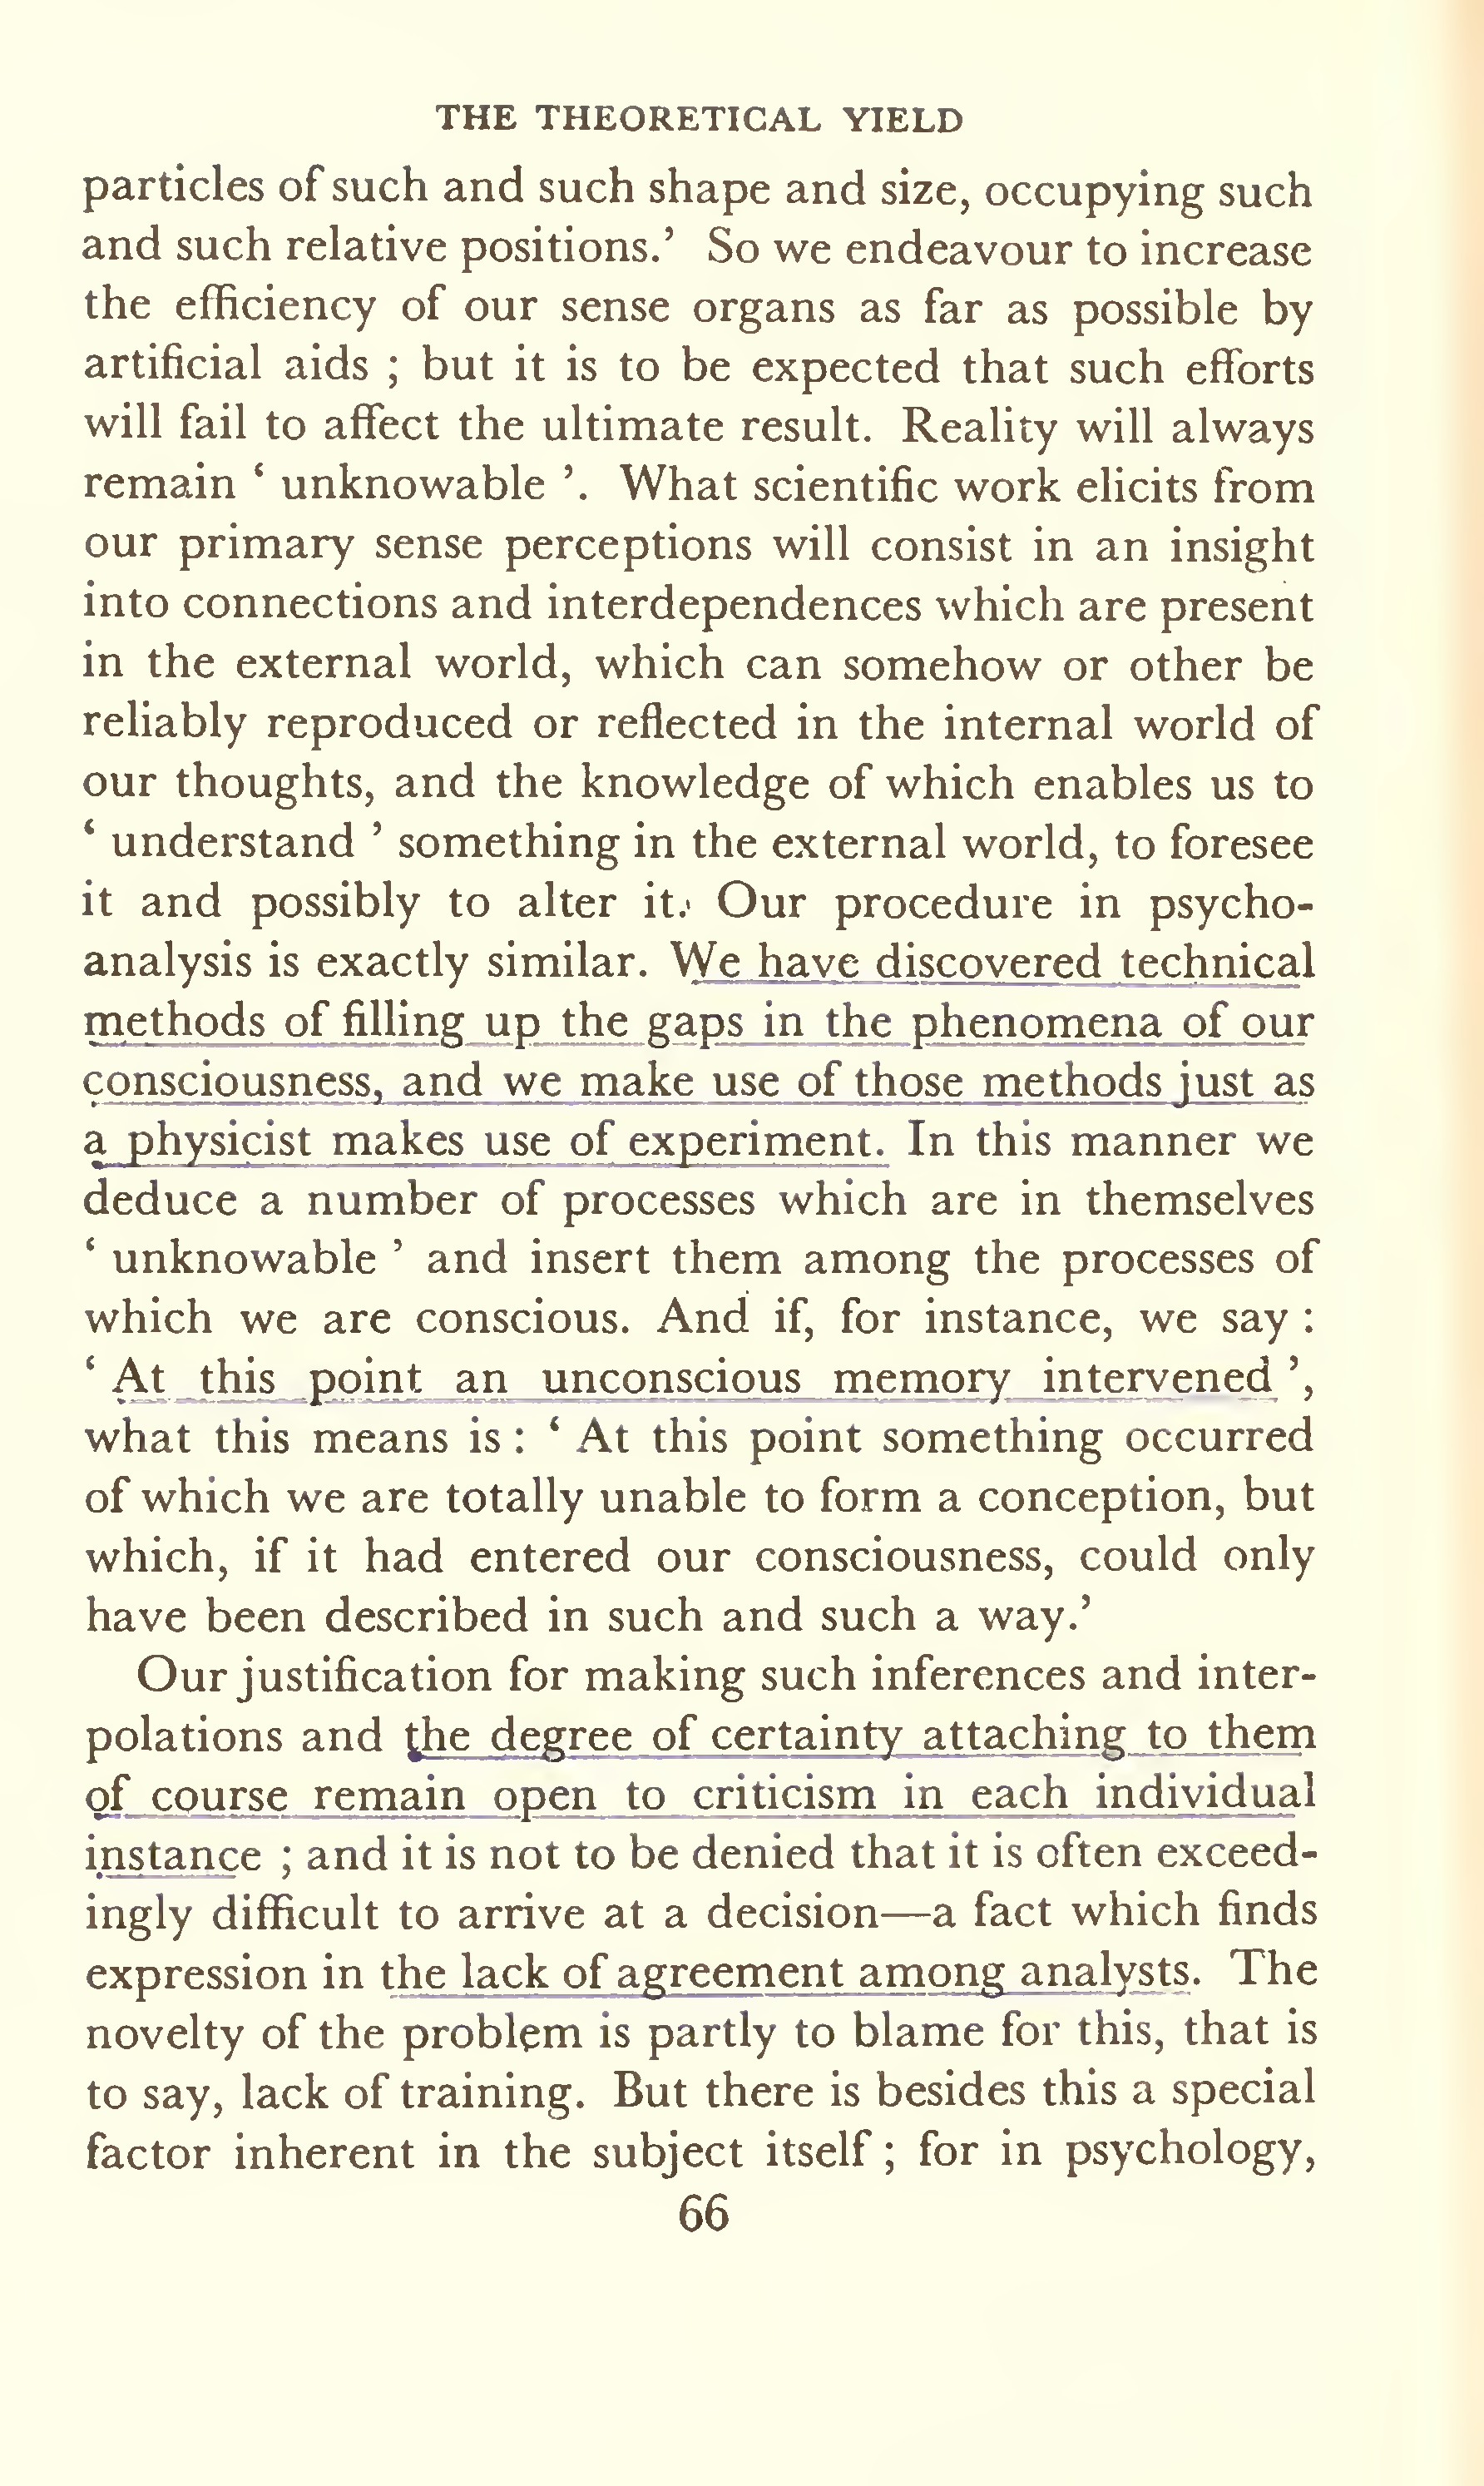 THE THEORETICAL YIELD
particles of such and such shape and size, occupying such
and such relative positions.’ So we endeavour to increase
the efficiency of our sense organs as far as possible by
artificial aids ; but it is to be expected that such efforts
will fail to affect the ultimate result. Reality will always
remain ‘ unknowable ’. What scientific work elicits from
our primary sense perceptions will consist in an insight
into connections and interdependences which are present
in the external world, which can somehow or other be
reliably reproduced or reflected in the internal world of
our thoughts, and the knowledge of which enables us to
‘ understand ’ something in the external world, to foresee
it and possibly to alter it. Our procedure in psycho-
analysis is exactly similar. We have discovered technical
methods of filling up the gaps in the phenomena of our
consciousness, and we make use of those methods just as
a physicist makes use of experiment. In this manner we
deduce a number of processes which are in themselves
‘ unknowable ’ and insert them among the processes of
which we are conscious. And if, for instance, we say :
‘ At this point an unconscious memory intervened ’,
what this means is : ‘ At this point something occurred
of which we are totally unable to form a conception, but
which, if it had entered our consciousness, could only
have been described in such and such a way.’
Our justification for making such inferences and inter-
polations and the degree of certainty attaching to them
of course remain open to criticism in each individual
instance ; and it is not to be denied that it is often exceed-
ingly difficult to arrive at a decision—a fact which finds
expression in the lack of agreement among analysts. The
novelty of the problem is partly to blame for this, that is
to say, lack of training. But there is besides this a special
factor inherent in the subject itself ; for in psychology,
66